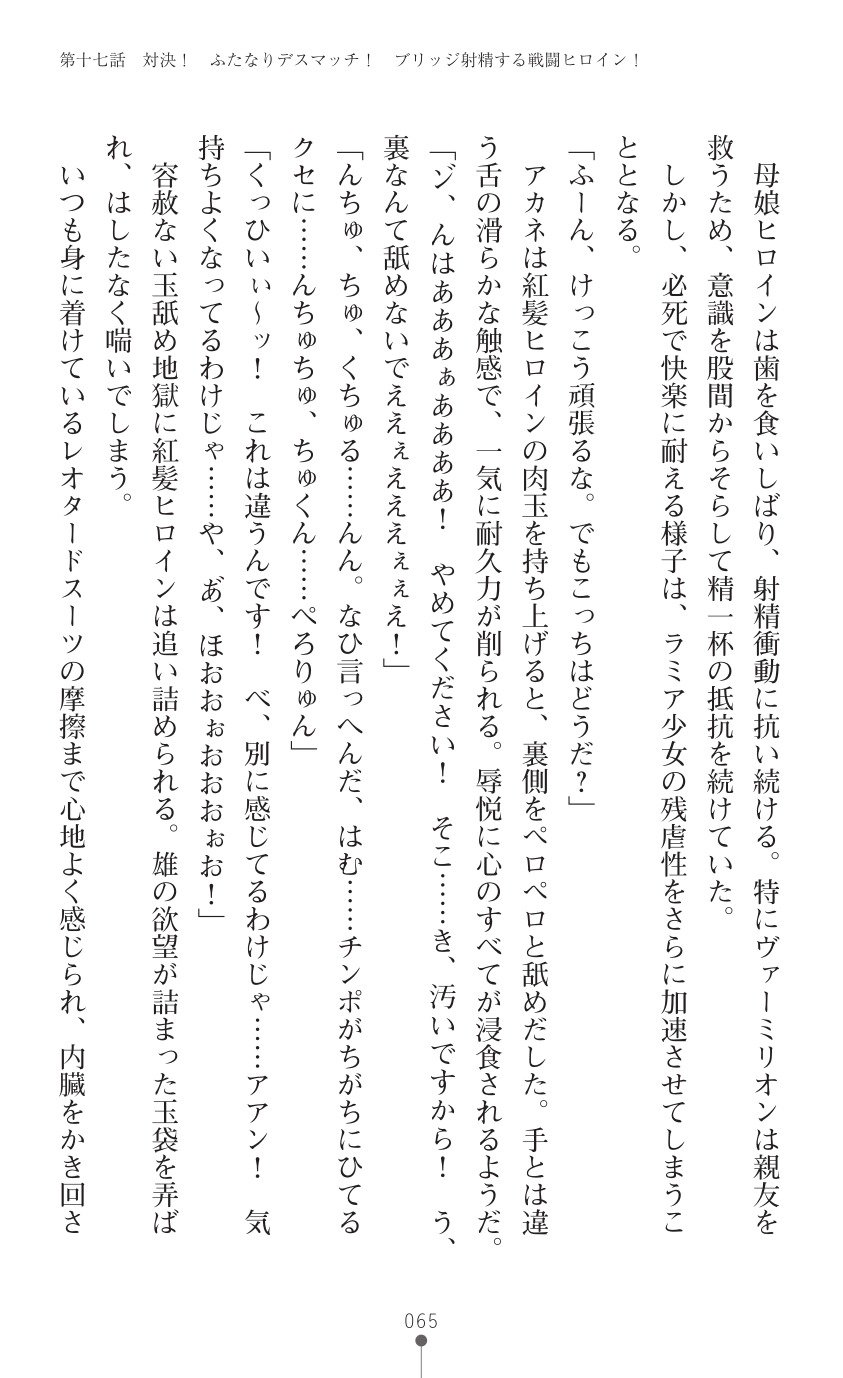 第十七話　対決！　ふたなりデスマッチ！　ブリッジ射精する戦闘ヒロイン！
母娘ヒロインは歯を食いしばり、射精衝動に抗い続ける。特にヴァーミリオンは親友を
救うため、意識を股間からそらして精一杯の抵抗を続けていた。
しかし、必死で快楽に耐える様子は、ラミア少女の残虐性をさらに加速させてしまうこ
ととなる。
「ふーん、けっこう頑張るな。でもこっちはどうだ？」
アカネは紅髪ヒロインの肉玉を持ち上げると、裏側をペロペロと舐めだした。手とは違
う舌の滑らかな触感で、一気に耐久力が削られる。辱悦に心のすべてが浸食されるようだ。
「ゾ、んはぁああぁああああ！　やめてください！　そこ……き、汚いですから！　う、
裏なんて舐めないでええぇえええぇぇえ！」
「んちゅ、ちゅ、くちゅる……んん。なひ言っへんだ、はむ……チンポがちがちにひてる
クセに……んちゅちゅ、ちゅくん……ぺろりゅん」
「くっひいぃ～ッ！　これは違うんです！　べ、別に感じてるわけじゃ……アアン！　気
持ちよくなってるわけじゃ……や、あ゛、ほおおぉおおおぉお！」
容赦ない玉舐め地獄に紅髪ヒロインは追い詰められる。雄の欲望が詰まった玉袋を弄ば
れ、はしたなく喘いでしまう。
いつも身に着けているレオタードスーツの摩擦まで心地よく感じられ、内臓をかき回さ
065